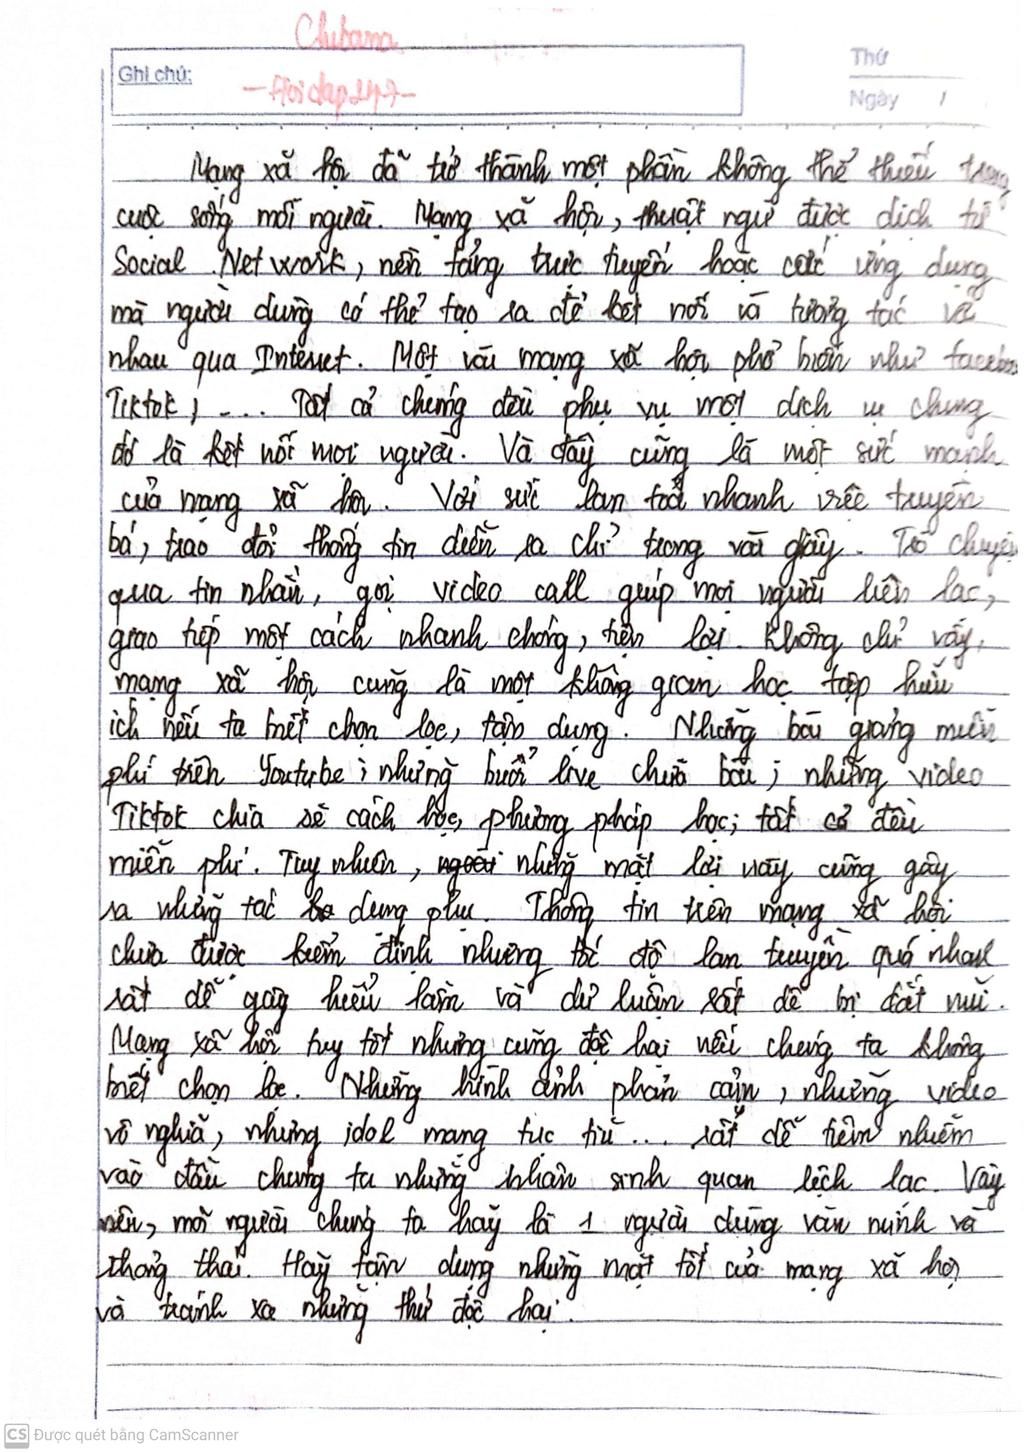 Chubam
Ghi chú:
-Hoidap247-
Thứ
Ngày /
Mạng xã hội đã trở thành một phần không thể thiếu trong
cuộc sống mỗi người. Mạng xã hội, thuật ngữ được dịch từ
Social Network, nền tảng trực tuyến hoặc các ứng dụng
mà người dùng có thể tạo ra để kết nối và tương tác với
nhau qua Internet. Một vài mạng xã hội phổ biến như facebook
Tiktok, .... Tất cả chúng đều phục vụ một dịch vụ chung
đó là kết nối mọi người. Và đây cũng là một sức mạnh
của mạng xã hội. Với sức lan toả nhanh việc truyền
bá, trao đổi thông tin diễn ra chỉ trong vài giây. Trò chuyện
qua tin nhắn, gọi video call giúp mọi người liên lạc,
giao tiếp một cách nhanh chóng, tiện lợi. Không chỉ vậy,
mạng xã hội cũng là một không gian học tập hữu
ích nếu ta biết chọn lọc, tận dụng. Những bài giảng miễn
phí trên Youtube; những buổi live chữa bài; những video
Tiktok chia sẻ cách học, phương pháp học; tất cả đều
miễn phí. Tuy nhiên, những mặt lợi này cũng gây
ra những tác dụng phụ. Thông tin trên mạng xã hội
chưa được kiểm định nhưng tốc độ lan truyền quá nhanh
rất dễ gây hiểu lầm và dư luận rất dễ bị dắt mũi.
Mạng xã hội tuy tốt nhưng cũng độc hại nếu chúng ta không
biết chọn lọc. Những hình ảnh phản cảm, những video
vô nghĩa, những idol mạng tục tĩu... rất dễ tiêm nhiễm
vào đầu chúng ta những nhân sinh quan lệch lạc. Vậy
nên, mỗi người chúng ta hãy là 1 người dùng văn minh và
thông thái. Hãy tận dụng những mặt tốt của mạng xã hội
và tránh xa những thứ độc hại.
CS Được quét bằng CamScanner